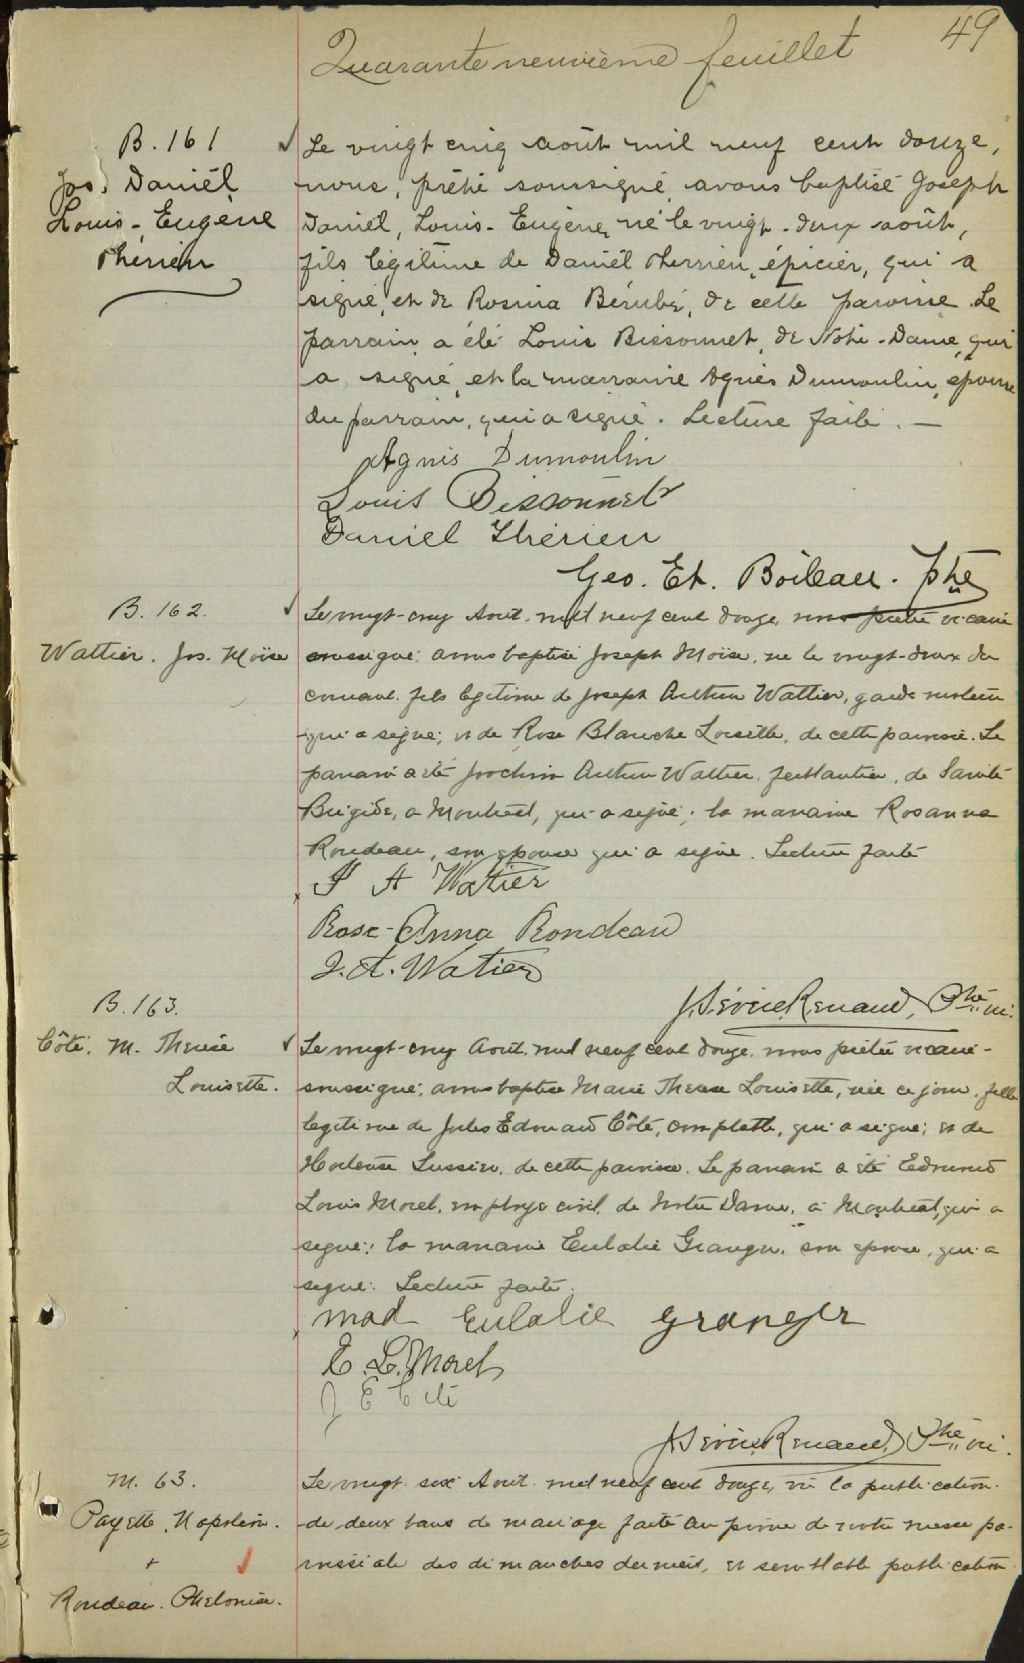 49
Quarante neuvième feuillet
B. 161
Jos. Daniël
Louis-Eugène
Therien
Le vingt cinq août mil neuf cent douze,
nous, prêtre soussigné, avons baptisé Joseph
Daniël, Louis-Eugène, né le vingt-deux août,
fils légitime de Daniël Therrien, épicier, qui a
signé, et de Rosina Bérubé, de cette paroisse. Le
parrain a été Louis Bissonnet, de Notre-Dame, qui
a signé, et la marraine Agnès Dumoulin, épouse
du parrain, qui a signé. Lecture faite. —
Agnis Dumoulin
Louis Bissonnet
Daniel Therien
Geo. Et. Boileau. Ptre
B. 162.
Wattier. Jos. Moïse
Le vingt-cinq Août mil neuf cent douze, nous prêtre vicaire
soussigné, avons baptisé Joseph Moïse, né le vingt-deux du
courant, fils légitime de Joseph Arthur Wattier, garde moteur
qui a signé; et de Rose Blanche Loiselle, de cette paroisse. Le
parrain a été Joachim Arthur Wattier, ferblantier, de Sainte
Brigide, à Montréal, qui a signé; la marraine Rosanna
Rondeau, son épouse qui a signé. Lecture faite
J A Watier
Rose-Anna Rondeau
J. A. Watier
Renaud, Ptre vic.
B. 163.
Côté. M. Thérèse
Louisette.
Le vingt-cinq Août, mil neuf cent douze, nous prêtre vicaire
soussigné, avons baptisé Marie Thérèse Louisette, née ce jour, fille
légitime de Jules Edouard Côté, comptable, qui a signé; et de
Hortense Lussier, de cette paroisse. Le parrain a été Edmond
Louis Morel, employé civil, de Notre Dame, à Montréal, qui a
signé; la marraine Eulalie Granger, son épouse, qui a
signé. Lecture faite.
Mad Eulalie Granger
E. L. Morel
J E Côté
Renaud, Ptre vic.
M. 63.
Payette. Napoléon.
+
Rondeau. Phelonise.
Le vingt six Août mil neuf cent douze, vu la publication
de deux bans de mariage faite au prône de notre messe pa-
roissiale des dimanches derniers, et semblable publication